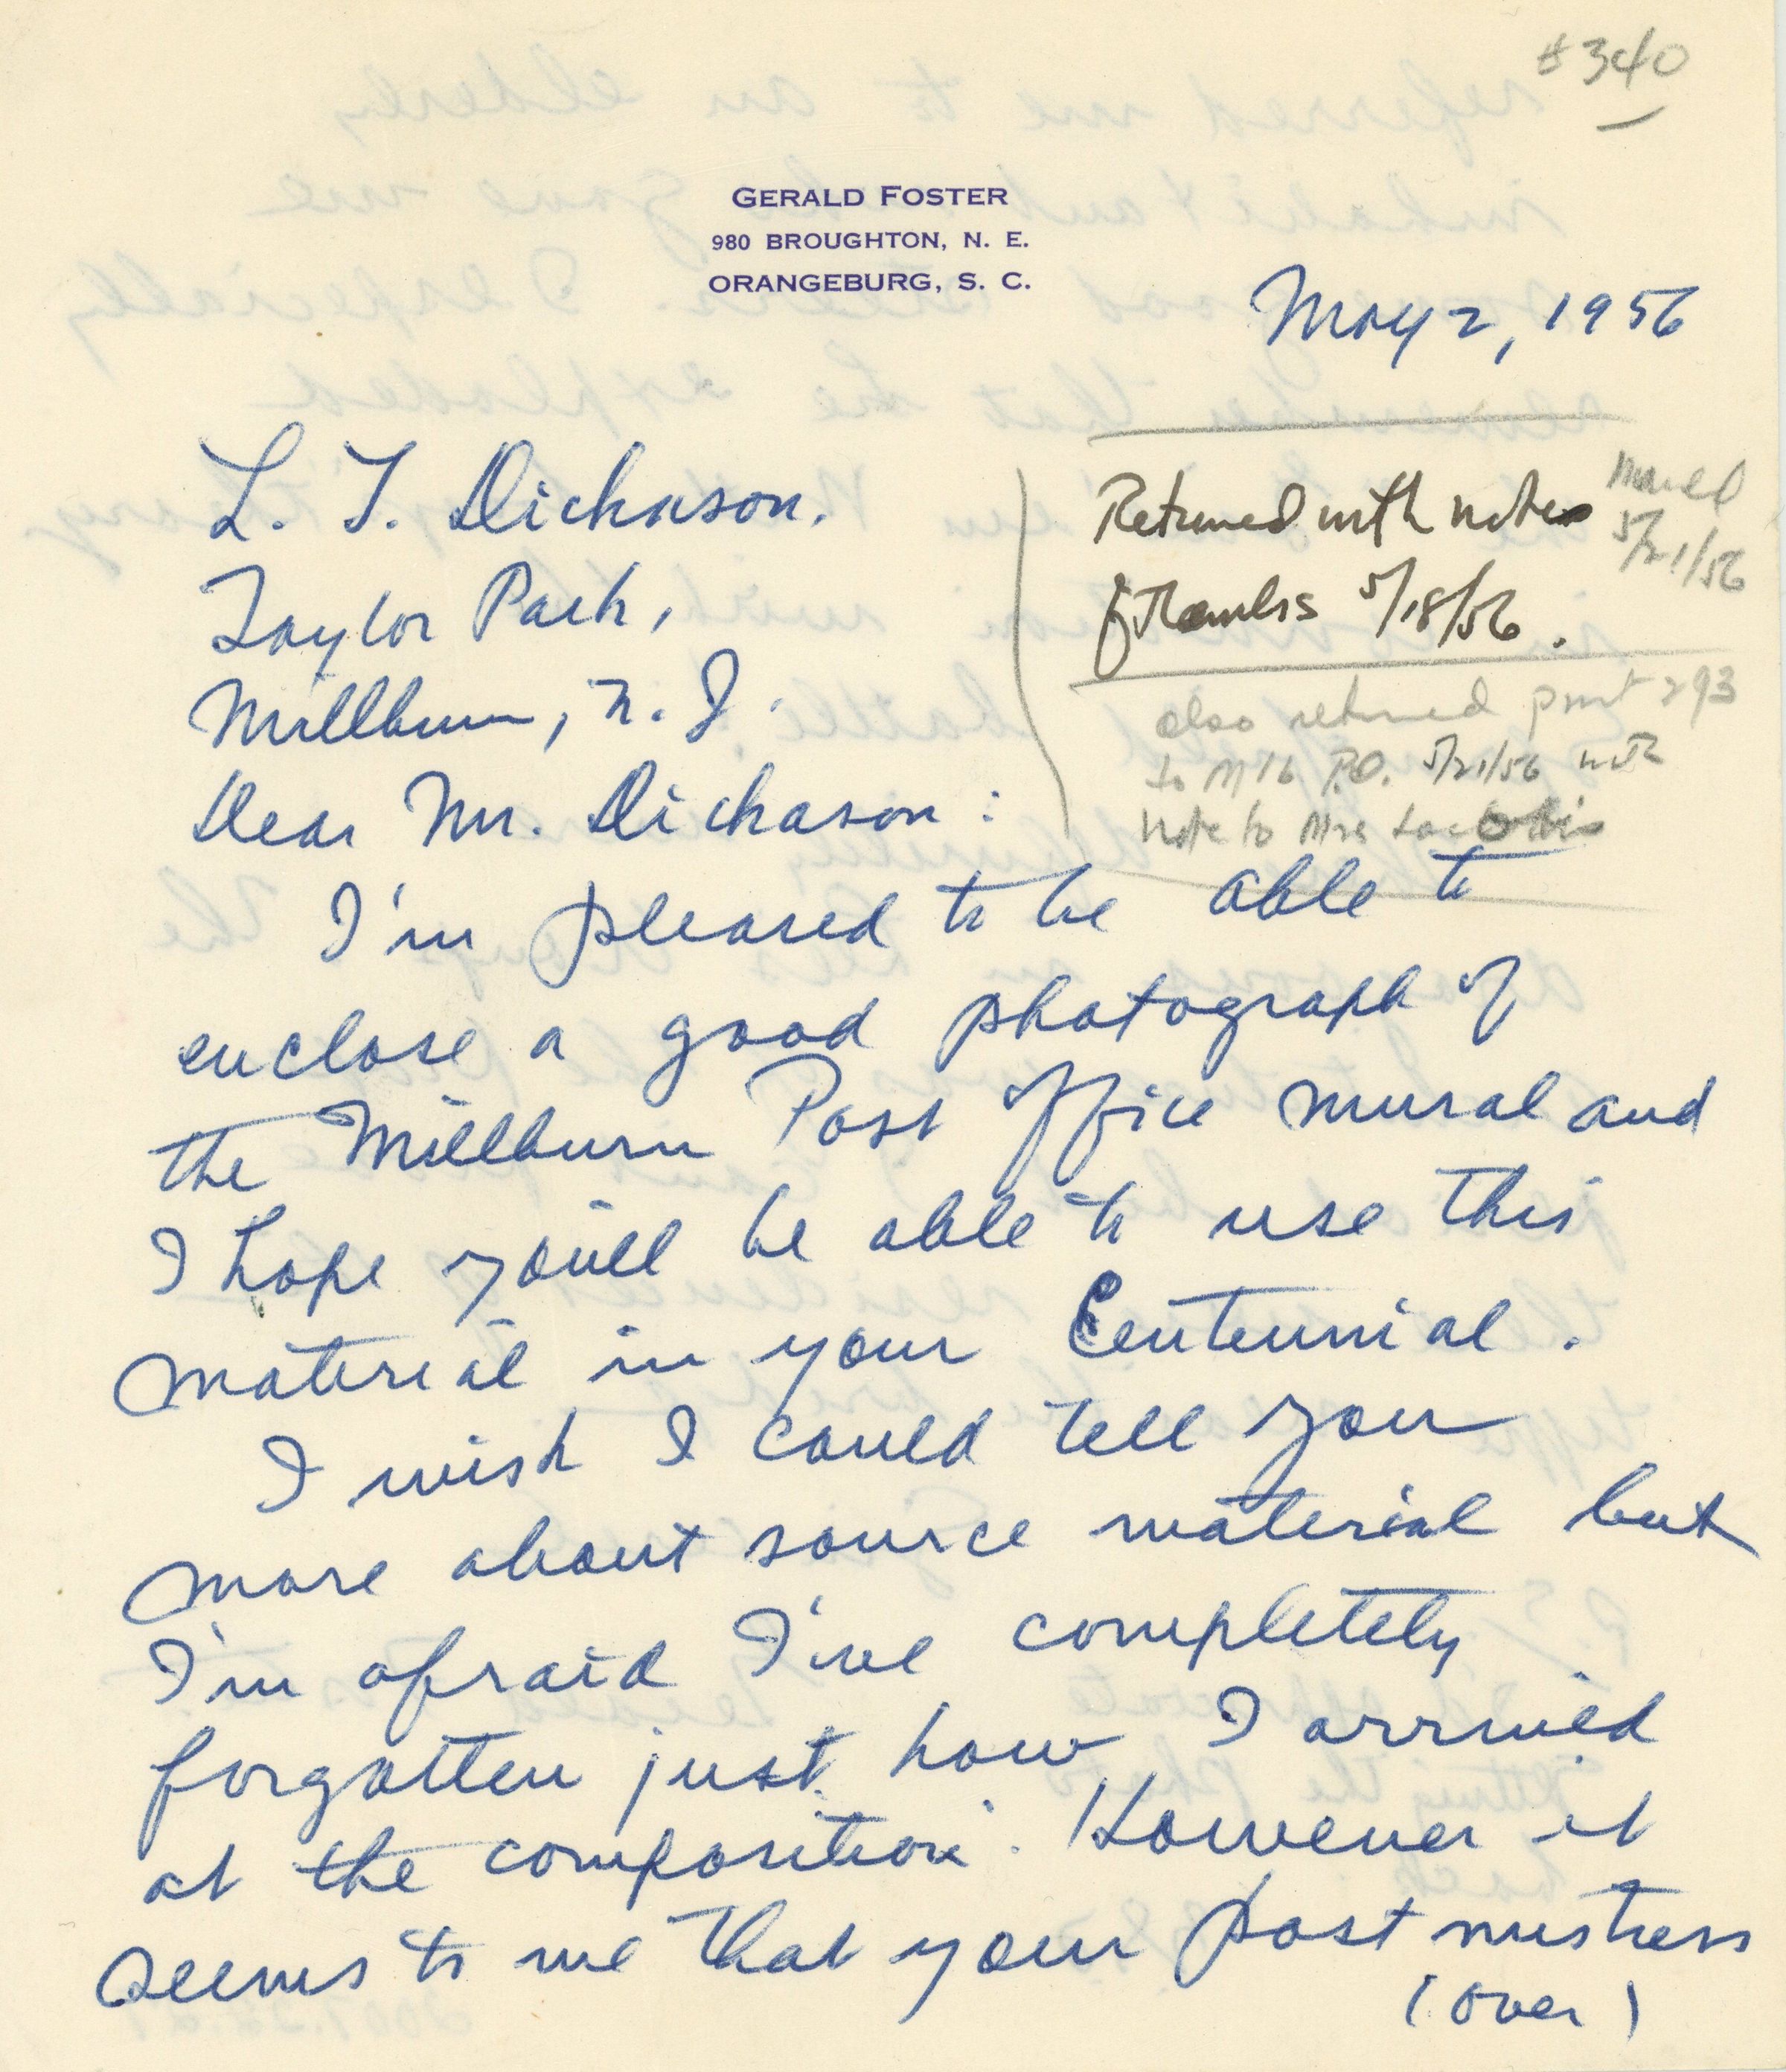 #340
GERALD FOSTER
980 BROUGHTON, N. E.
ORANGEBURG, S. C.
May 2, 1956
L. T. Dickason.
Taylor Park,
Millburn, N. J.
Returned with notes
of Thanks 5/18/56.
5/21/56
also returned print 293
to Mlb P.O. 5/21/56 with
note to Mrs
Dear Mr. Dickason:
I'm pleased to be able to
enclose a good photograph of
the Millburn Post Office mural and
I hope you'll be able to use this
material in your Centennial.
I wish I could tell you
more about source material but
I'm afraid I've completely
forgotten just how I arrived
at the composition. However it
seems to me that your post mistress
(over)